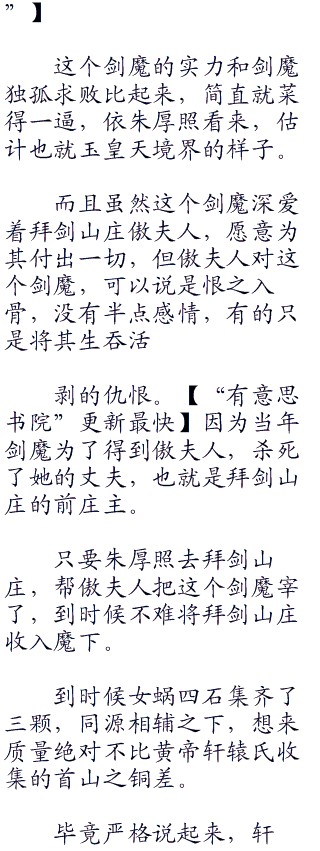 ”】
这个剑魔的实力和剑魔
独孤求败比起来，简直就菜
得一逼，依朱厚照看来，估
计也就玉皇天境界的样子。
而且虽然这个剑魔深爱
着拜剑山庄傲夫人，愿意为
其付出一切，但傲夫人对这
个剑魔，可以说是恨之入
骨，没有半点感情，有的只
是将其生吞活
剥的仇恨。【“有意思
书院”更新最快】因为当年
剑魔为了得到傲夫人，杀死
了她的丈夫，也就是拜剑山
庄的前庄主。
只要朱厚照去拜剑山
庄，帮傲夫人把这个剑魔宰
了，到时候不难将拜剑山庄
收入魔下。
到时候女蜗四石集齐了
三颗，同源相辅之下，想来
质量绝对不比黄帝轩辕氏收
集的首山之铜差。
毕竟严格说起来，轩